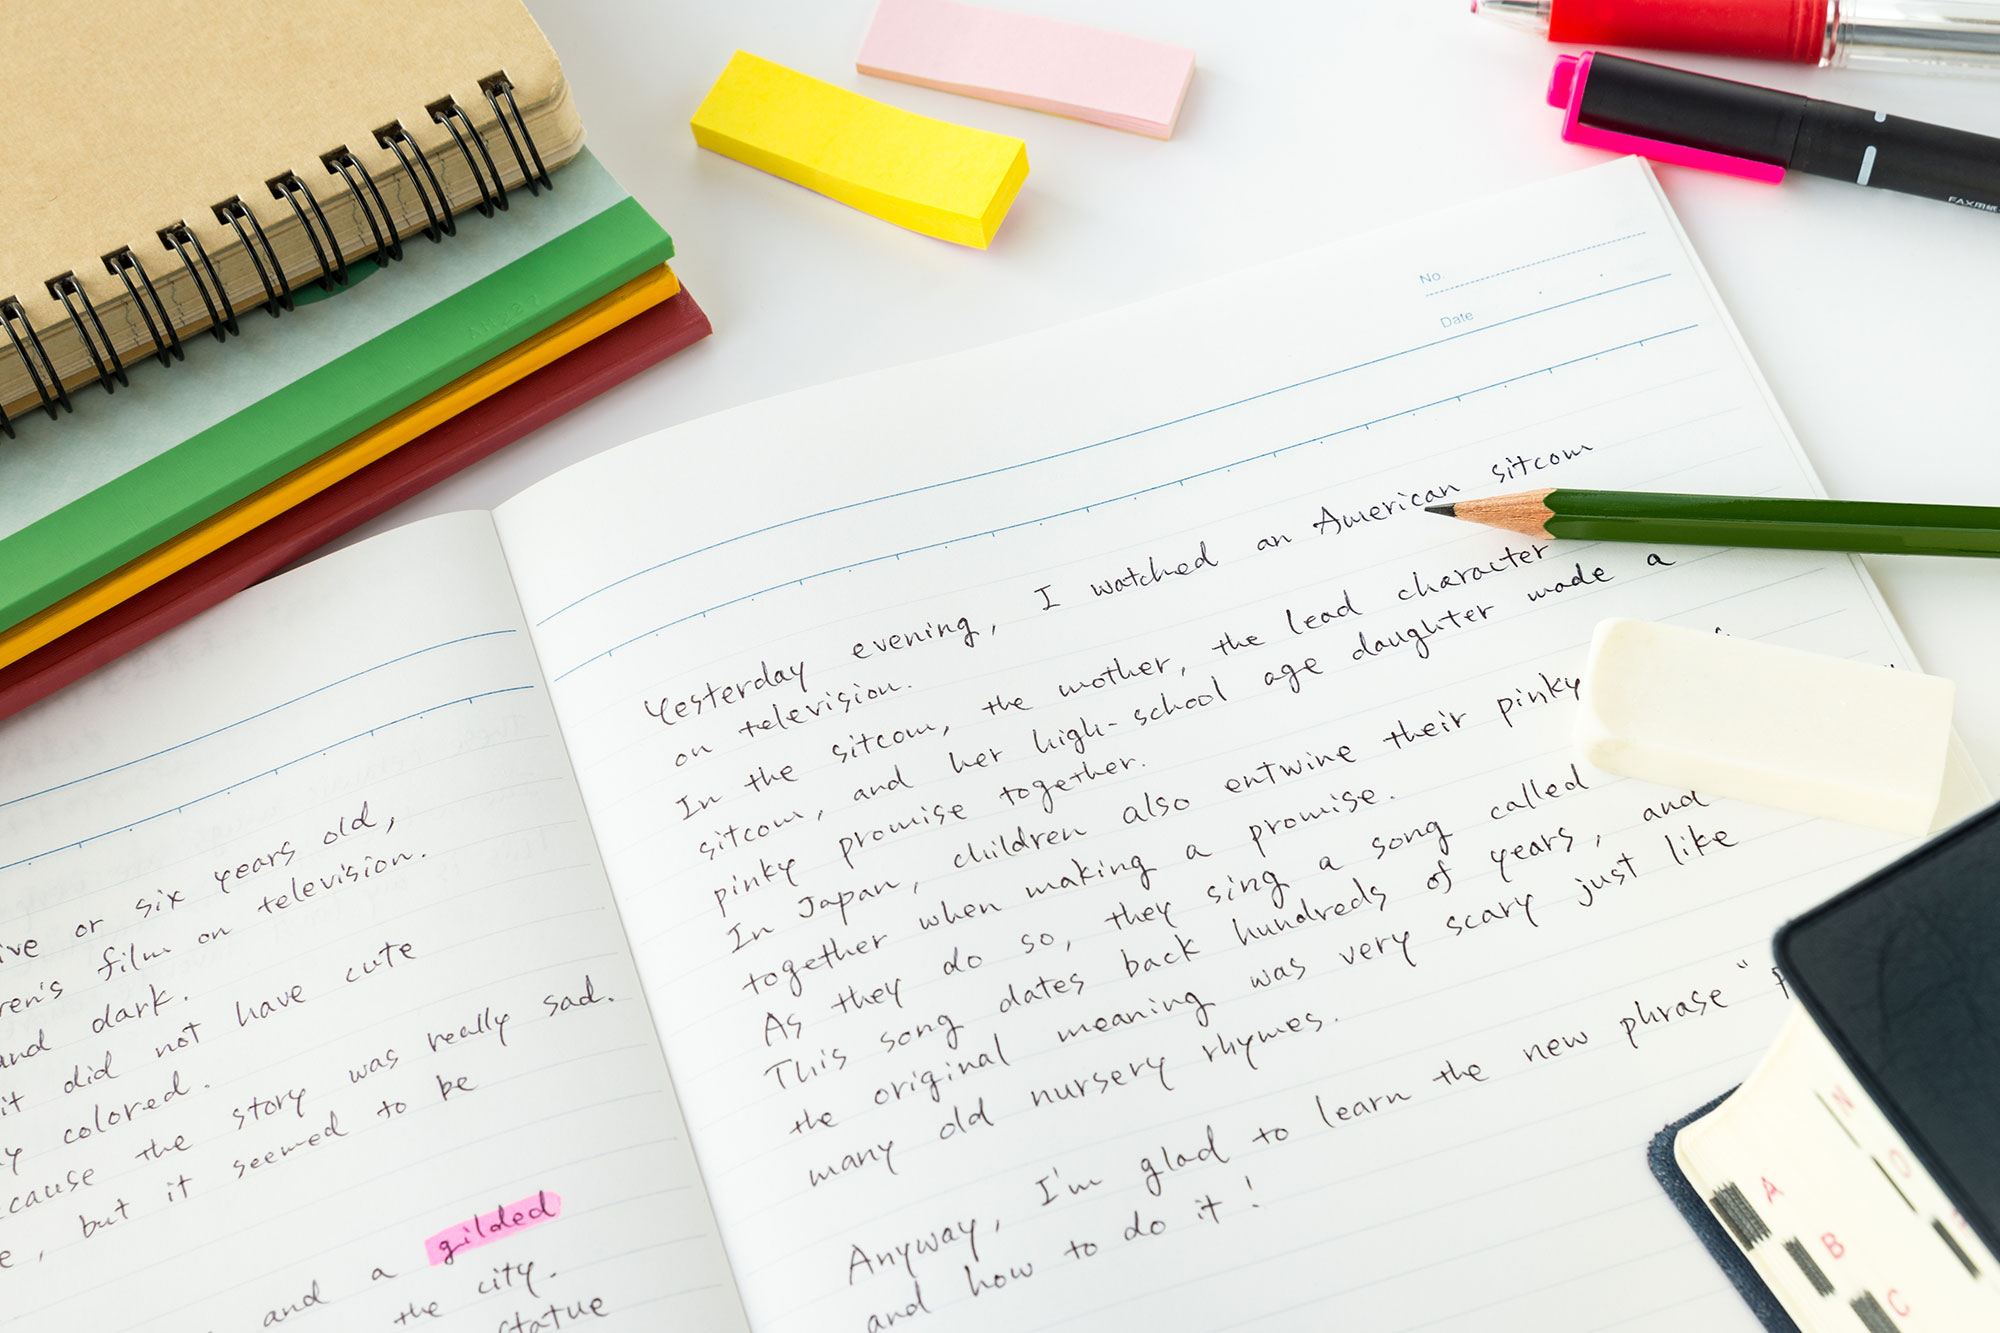 No.
Date
Yesterday evening, I watched an American sitcom
on television.
In the sitcom, the mother, the lead character
sitcom, and her high-school age daughter made a
pinky promise together.
In Japan, children also entwine their pinky
together when making a promise.
As they do so, they sing a song called
This song dates back hundreds of years, and
the original meaning was very scary just like
many old nursery rhymes.
Anyway, I'm glad to learn the new phrase "
and how to do it!
or six years old,
film on television.
and dark.
it did not have cute
colored.
the story was really sad.
, but it seemed to be
and a gilded
the city.
statue
A
B
C
N
O